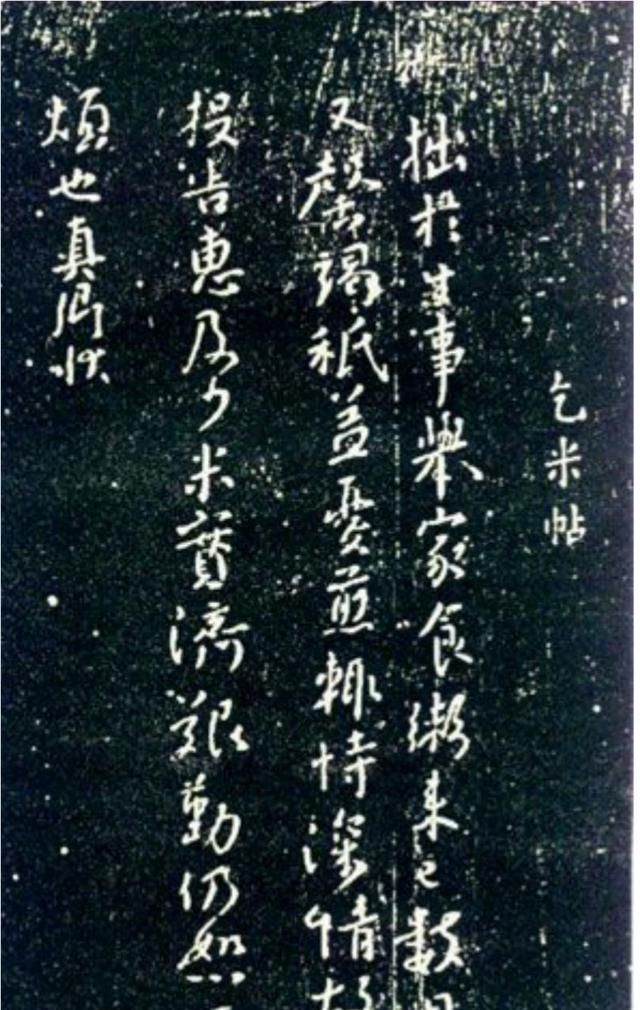 乞米帖
拙於生事舉家食粥来已數
又罄竭秖益憂煎輙恃深情故
投告惠及少米實濟艱勤仍恕
煩也真卿狀